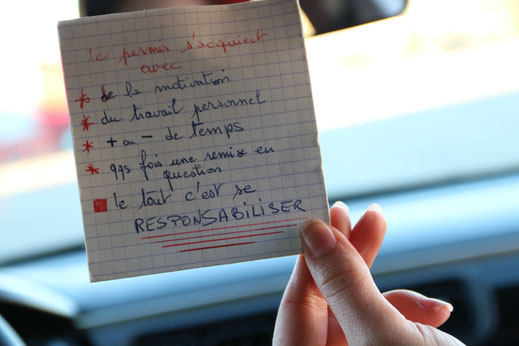 le permis s'acquiert
avec
* de la motivation
* du travail personnel
* + ou - de temps
* qqs fois une remise en
question
le tout c'est se
RESPONSABILISER